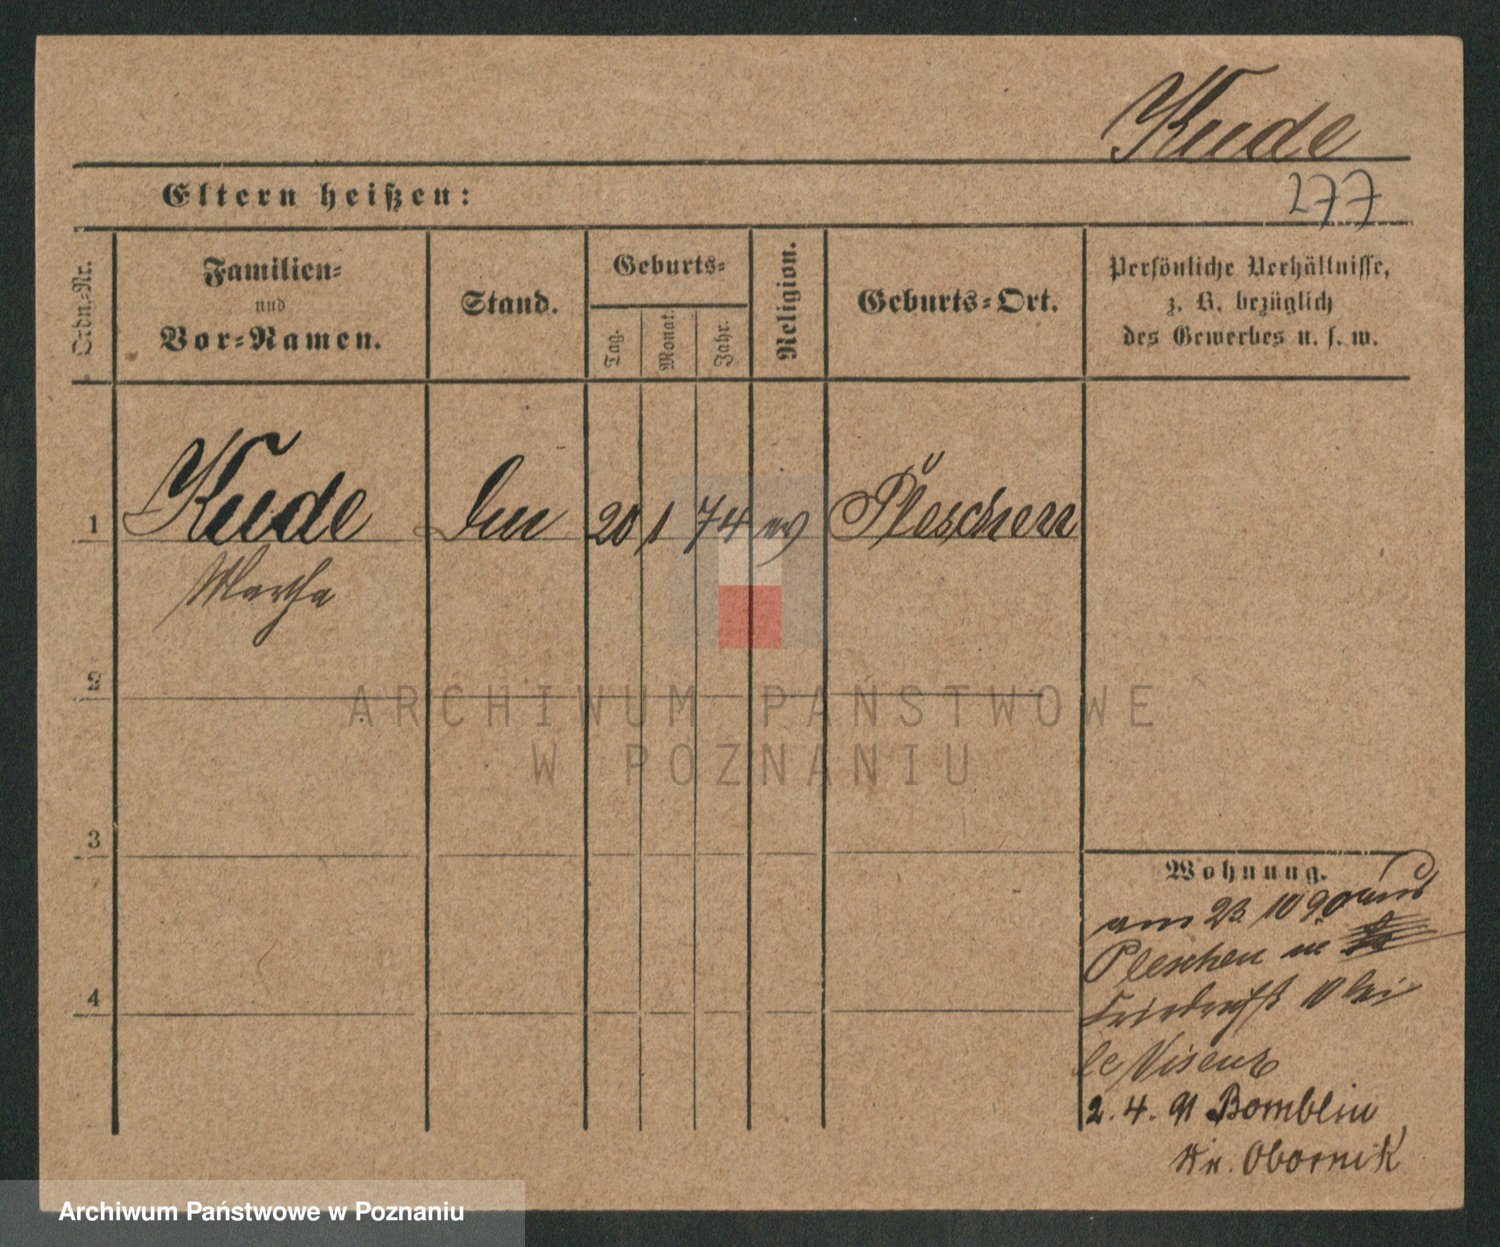 Kude
Eltern heißen:
277
Ordn.-Nr.
Familien-
und
Vor-Namen.
Stand.
Geburts-
Tag.
Monat.
Jahr.
Religion.
Geburts-Ort.
Persönliche Verhältnisse,
z. B. bezüglich
des Gewerbes u. s. w.
1 Kude 20 1 74 ev Pleschen
Martha
2
3
4
Wohnung.
am 23 10 90 aus
Pleschen in
Friedrichst 10 bei
le Viseur
2. 4. 91 Bomblin
Kr. Obornik
ARCHIWUM PAŃSTWOWE
W POZNANIU
Archiwum Państwowe w Poznaniu